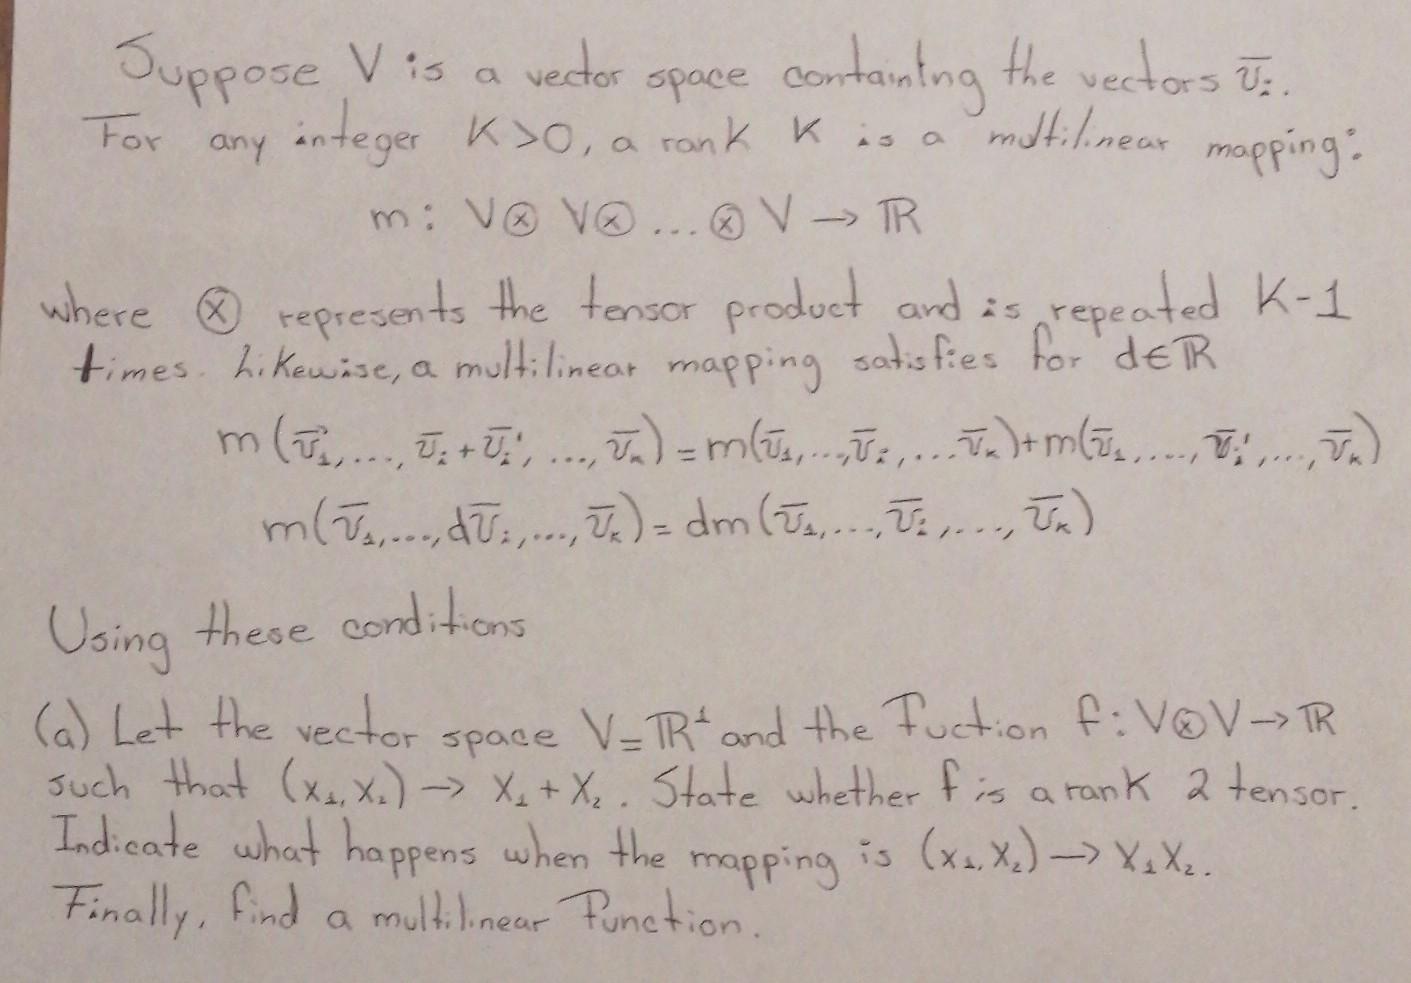 Suppose V is a vector space containing the vectors v̅ᵢ.
For any integer K>0, a rank K is a multilinear mapping:
m: V⊗ V⊗ ... ⊗ V → ℝ
where ⊗ represents the tensor product and is repeated K-1
times. Likewise, a multilinear mapping satisfies for d∈ℝ
m(v̅₁,..., v̅ᵢ + v̅ᵢ', ..., v̅ₖ) = m(v̅₁,...,v̅ᵢ,...v̅ₖ)+m(v̅₁,...,v̅ᵢ',...,v̅ₖ)
m(v̅₁,...,dv̅ᵢ,...,v̅ₖ) = dm(v̅₁,...,v̅ᵢ,...,v̅ₖ)
Using these conditions
(a) Let the vector space V=ℝ¹ and the Fuction f: V⊗V→ℝ
such that (x₁,x₂) → x₁+x₂. State whether f is a rank 2 tensor.
Indicate what happens when the mapping is (x₁,x₂) → x₁x₂.
Finally, find a multilinear Function.